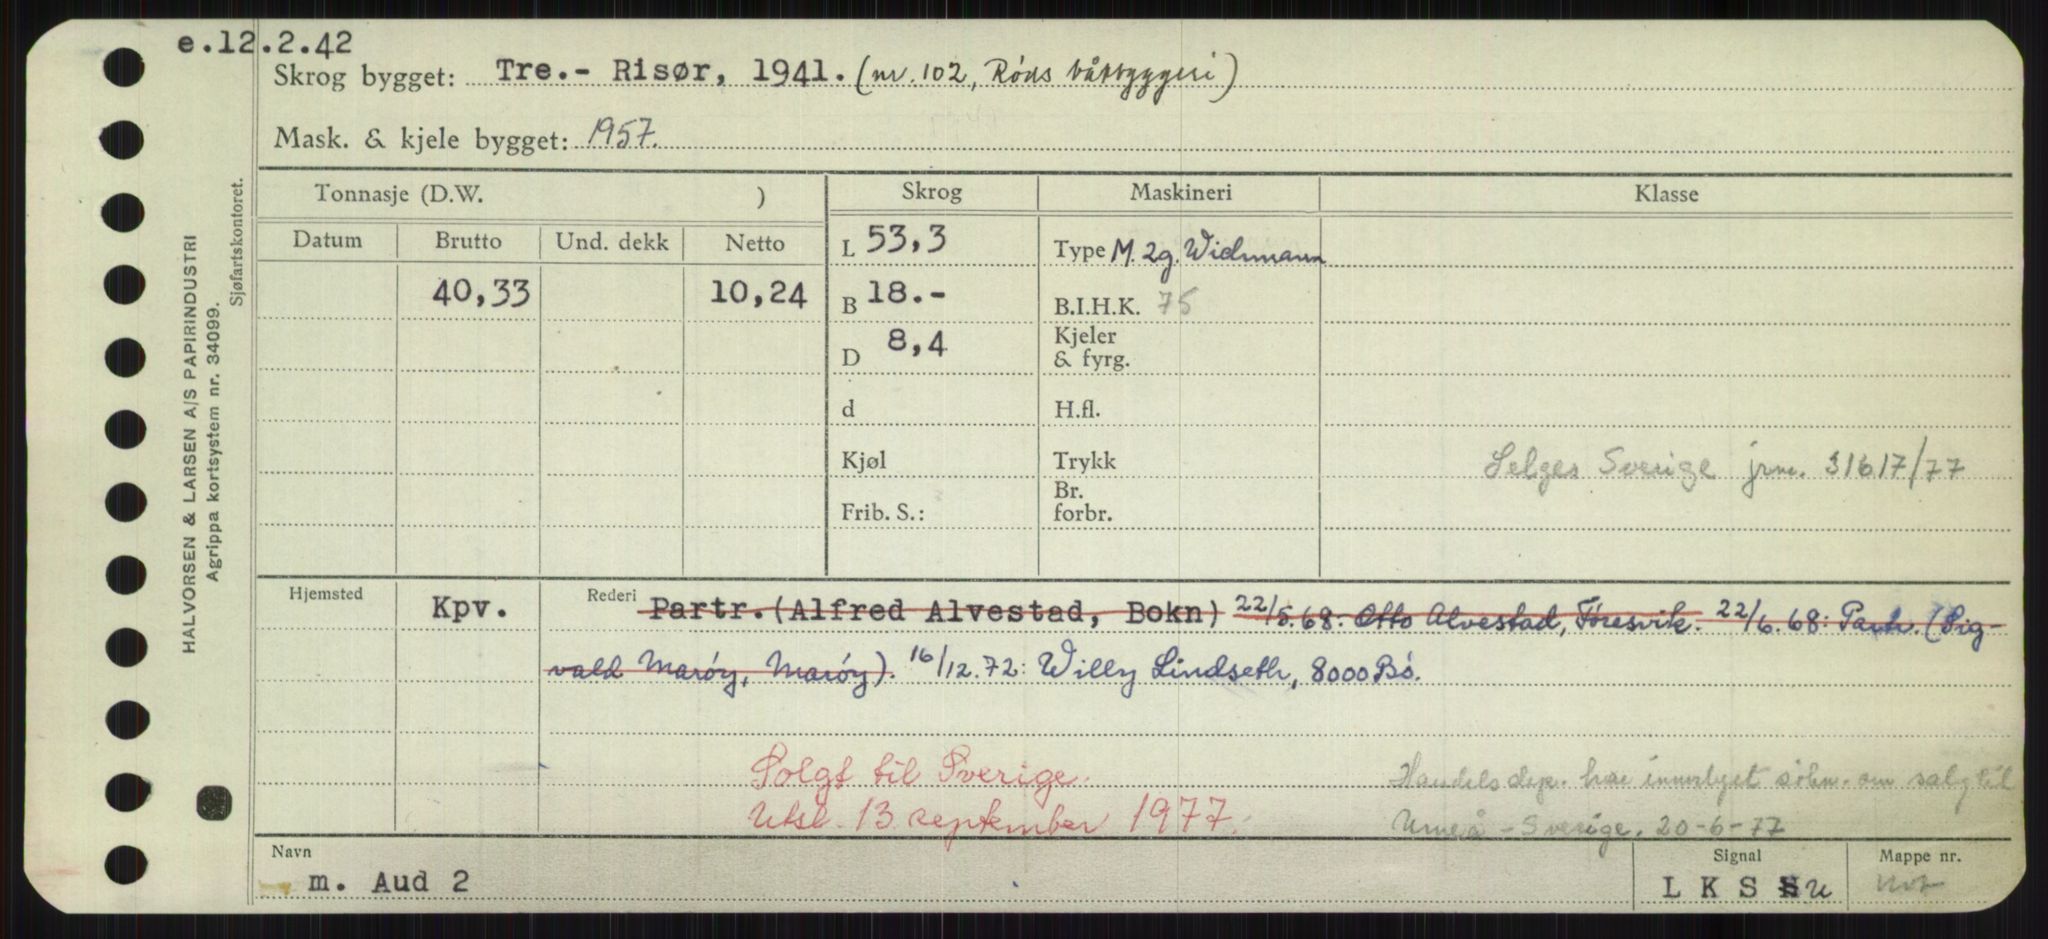 e.12.2.42
Skrog bygget: Tre.- Risør, 1941. (nr. 102, Røds båtbyggeri)
Mask. & kjele bygget: 1957.
HALVORSEN & LARSEN A/S PAPIRINDUSTRI
Agrippa kortsystem nr. 34099.
Sjøfartskontoret.
Tonnasje (D.W. ) Skrog Maskineri Klasse
Datum Brutto Und. dekk Netto
L 53,3 Type M. 2g. Wichmann
40,33 10,24 B 18.- B.I.H.K. 75
D 8,4 Kjeler & fyrg.
d H.fl.
Kjøl Trykk Selges Sverige jrnr. 31617/77
Frib. S.: Br. forbr.
Hjemsted Kpv. Rederi Partr. (Alfred Alvestad, Bokn) 22/5.68: Otto Alvestad, Føresvik. 22/6.68: Partr. (Sig-
vald Marøy, Marøy). 16/12.72: Willy Lindseth, 8000 Bø.
Solgt til Sverige.
Utsl. 13 september 1977.
Handelsdep. har innvilget søkn. om salg til
Umeå - Sverige. 20-6-77
Navn Signal Mappe nr.
m. Aud 2 L K S U